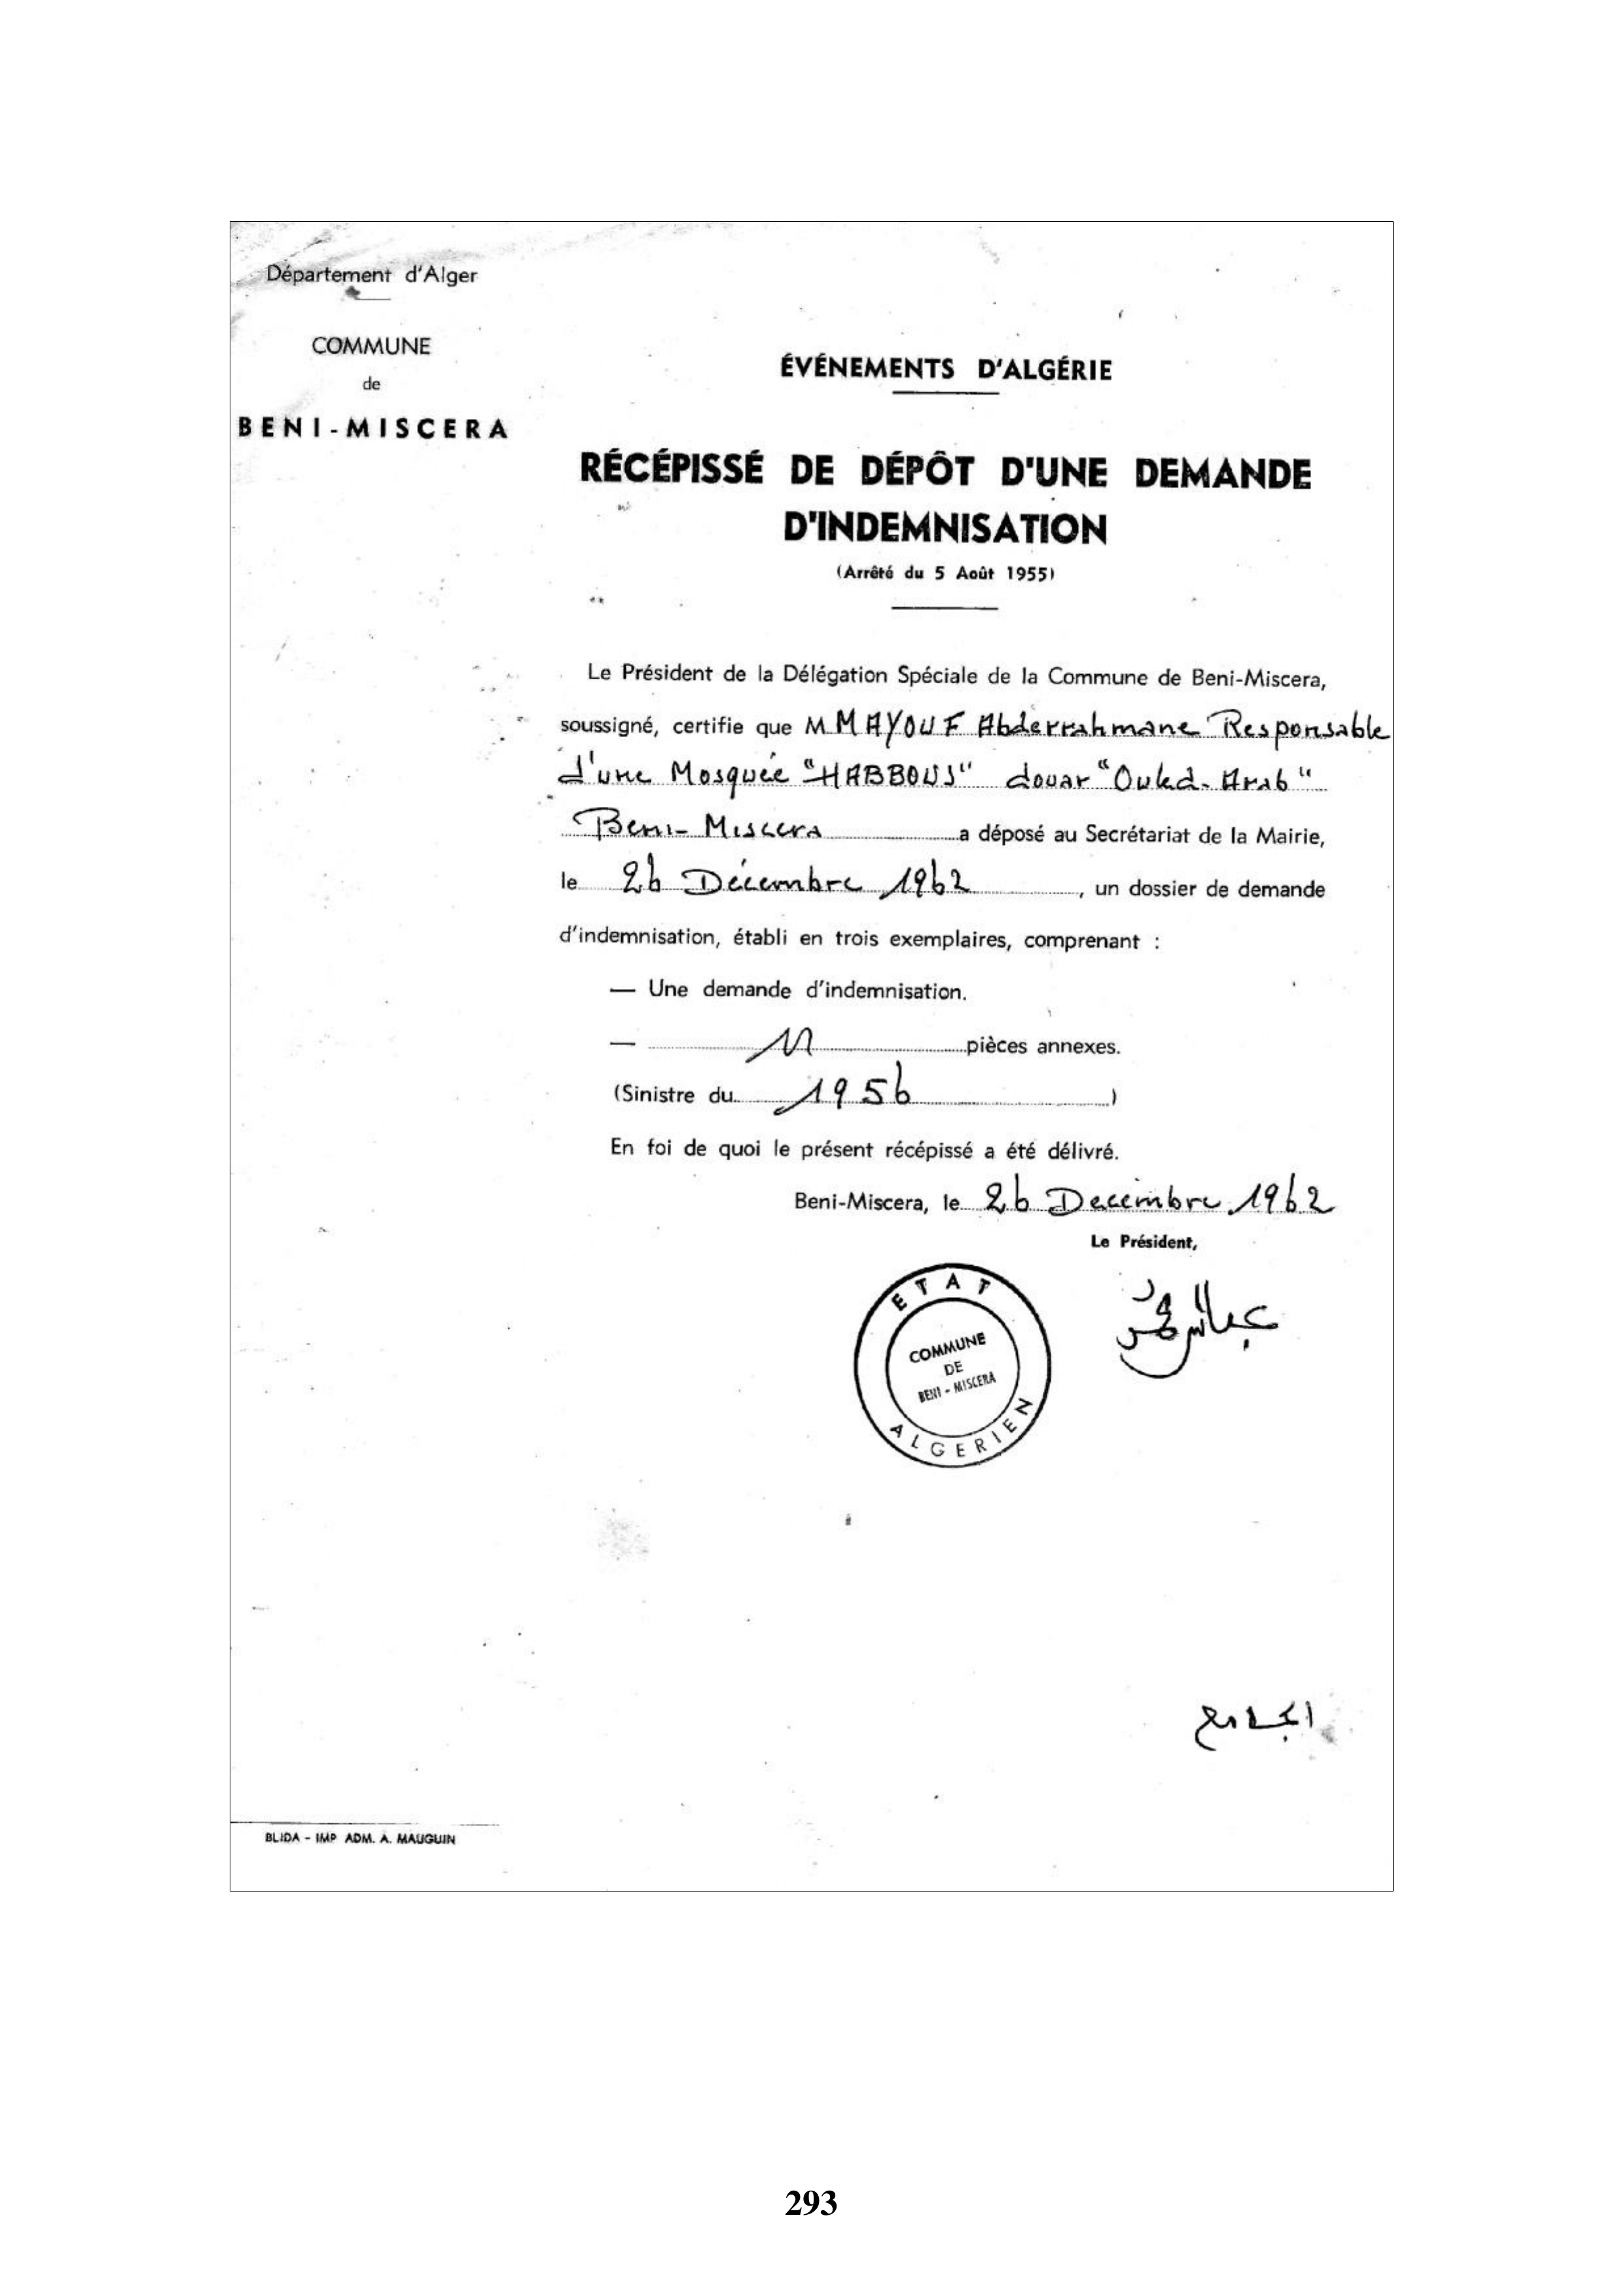 Département d'Alger
COMMUNE
de
BENI-MISCERA
ÉVÉNEMENTS D'ALGÉRIE
RÉCÉPISSÉ DE DÉPÔT D'UNE DEMANDE
D'INDEMNISATION
(Arrêté du 5 Août 1955)
Le Président de la Délégation Spéciale de la Commune de Beni-Miscera,
soussigné, certifie que M MAYOUF Abderrahmane Responsable
d'une Mosquée "HABBOUS" douar "Ouled-Arab"
Beni-Miscera a déposé au Secrétariat de la Mairie,
le 26 Décembre 1962, un dossier de demande
d'indemnisation, établi en trois exemplaires, comprenant :
— Une demande d'indemnisation.
— 11 pièces annexes.
(Sinistre du 1956)
En foi de quoi le présent récépissé a été délivré.
Beni-Miscera, le 26 Decembre 1962
Le Président,
ETAT
COMMUNE
DE
BENI - MISCERA
ALGERIEN
الجامع
BLIDA - IMP ADM. A. MAUGUIN
293